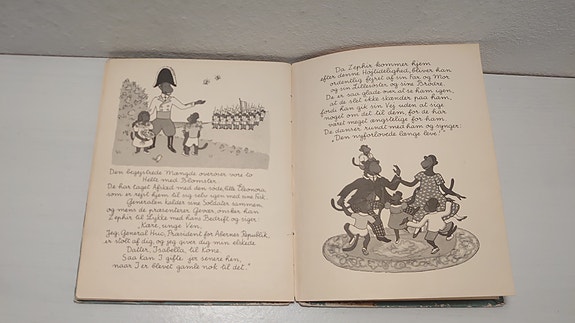 Den begejstrede Mængde overøser vore to
Helte med Blomster.
De har taget Afsked med den søde, lille Eleonora,
som er rejst hjem til sig selv igen med sine Fisk.
Generalen kalder sine Soldater sammen,
og mens de præsenterer Gevær, ønsker han
Zephir til Lykke med hans Bedrift og siger:
"Kære, unge Ven.
Jeg, General Huc, Præsident for Abernes Republik,
er stolt af dig, og jeg giver dig min elskede
Datter, Isabella, til Kone.
Saa kan I gifte jer senere hen,
naar I er blevet gamle nok til det."
Da Zephir kommer hjem
efter denne Højtidelighed, bliver han
ordentlig fejret af sin Far og Mor
og sin Lillesøster og sine Brødre.
De er saa glade over at se ham igen,
at de slet ikke skænder paa ham,
fordi han gik sin Vej uden at sige
noget om det til dem, for de har
været meget ængstelige for ham.
De danser rundt med ham og synger:
"Den nyforlovede længe leve!"